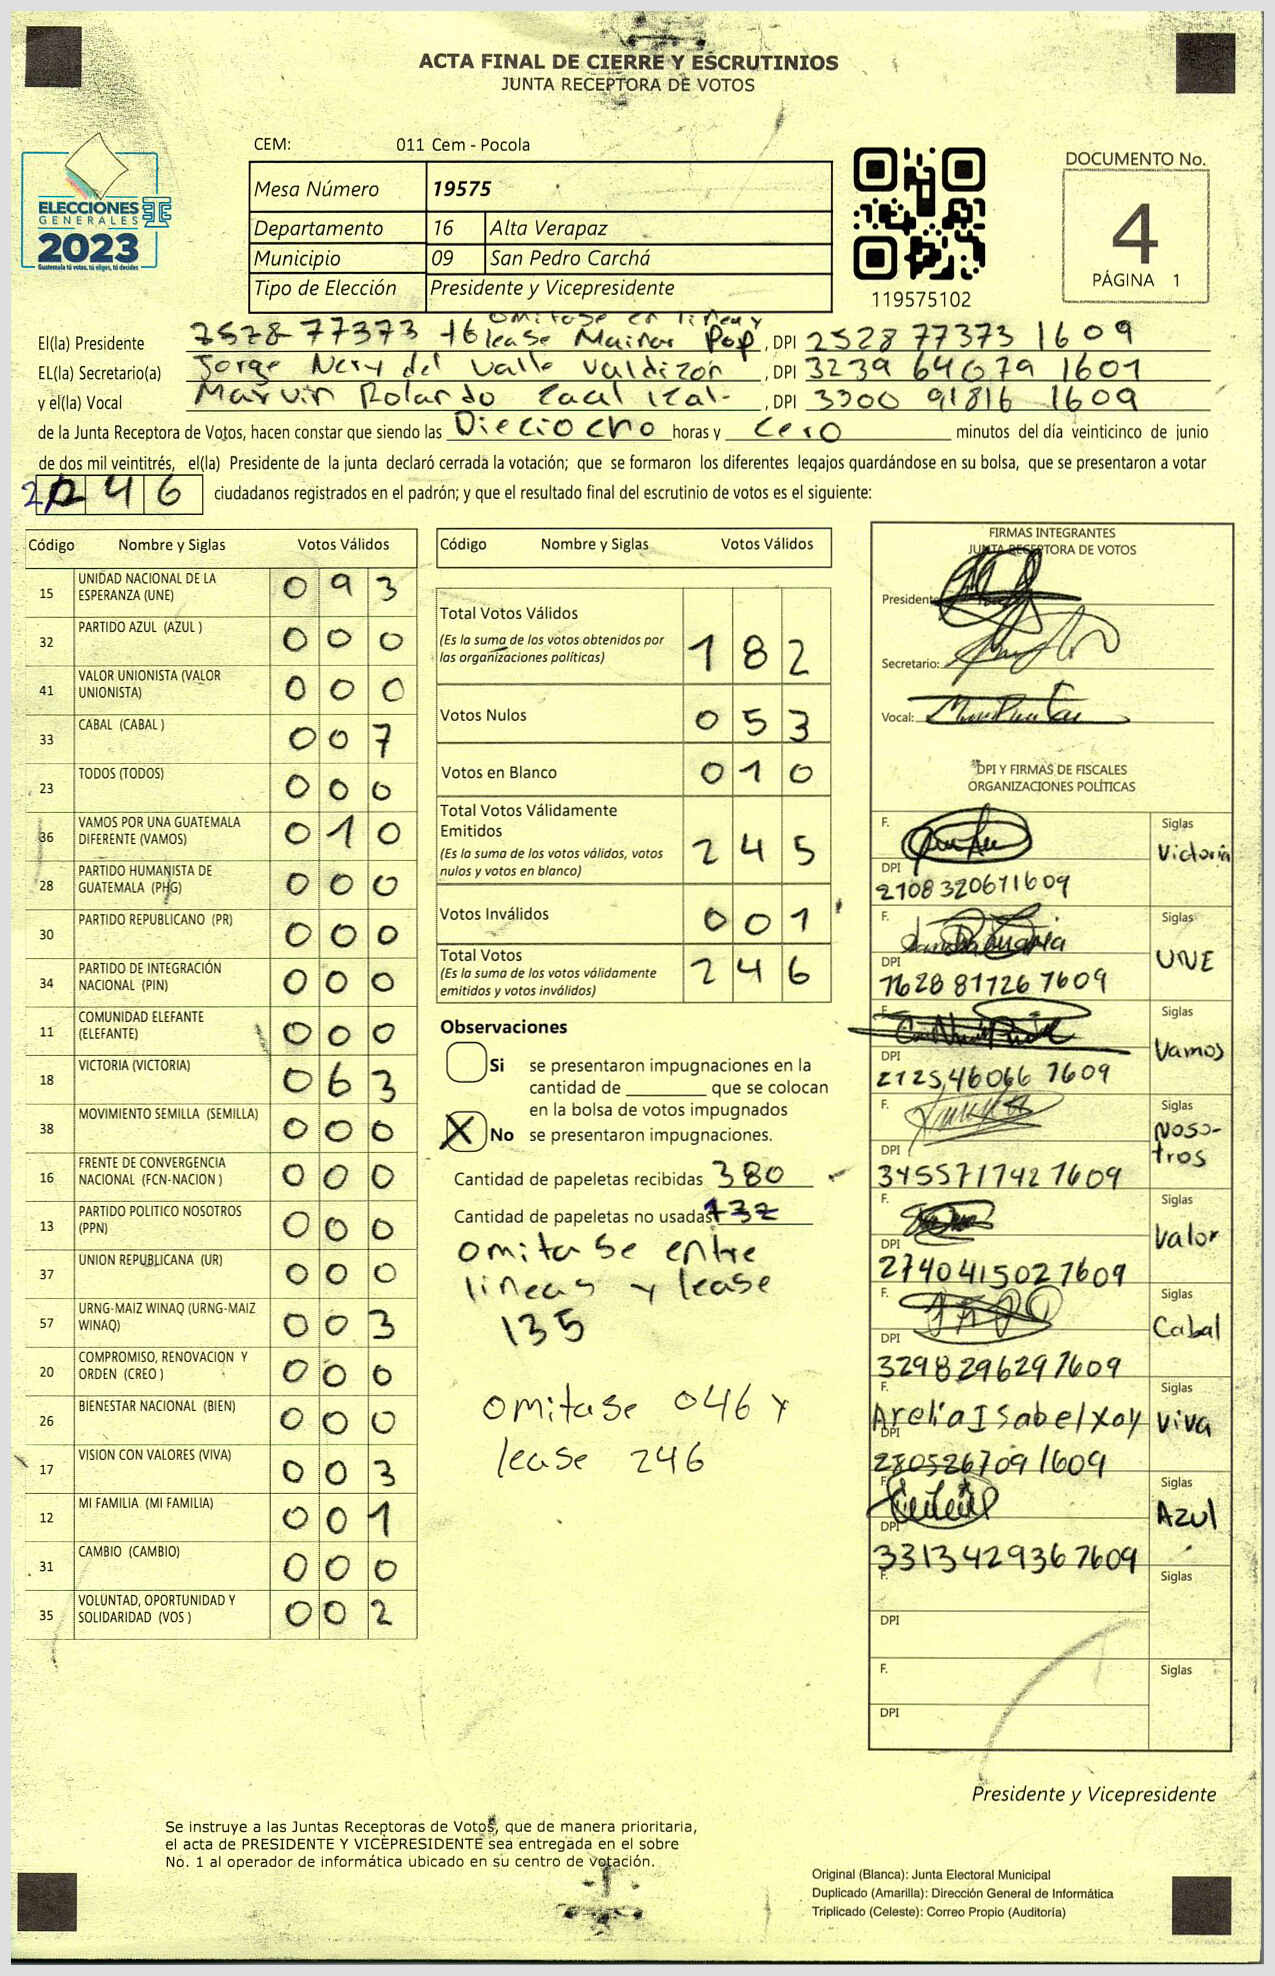 ACTA FINAL DE CIERRE Y ESCRUTINIOS
JUNTA RECEPTORA DE VOTOS
CEM: 011 Cem - Pocola
ELECCIONES
GENERALES
2023
Guatemala tú votas, tú eliges, tú decides
Mesa Número 19575
Departamento 16 Alta Verapaz
Municipio 09 San Pedro Carchá
Tipo de Elección Presidente y Vicepresidente
119575102
DOCUMENTO No.
4
PÁGINA 1
omitase en linea y
El(la) Presidente 2528 77373 16 lease Mainor Pop, DPI 2528 77373 1609
EL(la) Secretario(a) Jorge Nery del Valle Valdizon, DPI 3239 64079 1601
y el(la) Vocal Marvin Rolando Caal Ical, DPI 3300 91816 1609
de la Junta Receptora de Votos, hacen constar que siendo las Dieciocho horas y cero minutos del día veinticinco de junio
de dos mil veintitrés, el(la) Presidente de la junta declaró cerrada la votación; que se formaron los diferentes legajos guardándose en su bolsa, que se presentaron a votar
246 ciudadanos registrados en el padrón; y que el resultado final del escrutinio de votos es el siguiente:
Código Nombre y Siglas Votos Válidos
15 UNIDAD NACIONAL DE LA ESPERANZA (UNE) 093
32 PARTIDO AZUL (AZUL ) 000
41 VALOR UNIONISTA (VALOR UNIONISTA) 000
33 CABAL (CABAL ) 007
23 TODOS (TODOS) 000
36 VAMOS POR UNA GUATEMALA DIFERENTE (VAMOS) 010
28 PARTIDO HUMANISTA DE GUATEMALA (PHG) 000
30 PARTIDO REPUBLICANO (PR) 000
34 PARTIDO DE INTEGRACIÓN NACIONAL (PIN) 000
11 COMUNIDAD ELEFANTE (ELEFANTE) 000
18 VICTORIA (VICTORIA) 063
38 MOVIMIENTO SEMILLA (SEMILLA) 000
16 FRENTE DE CONVERGENCIA NACIONAL (FCN-NACION ) 000
13 PARTIDO POLITICO NOSOTROS (PPN) 000
37 UNION REPUBLICANA (UR) 000
57 URNG-MAIZ WINAQ (URNG-MAIZ WINAQ) 003
20 COMPROMISO, RENOVACION Y ORDEN (CREO ) 000
26 BIENESTAR NACIONAL (BIEN) 000
17 VISION CON VALORES (VIVA) 003
12 MI FAMILIA (MI FAMILIA) 001
31 CAMBIO (CAMBIO) 000
35 VOLUNTAD, OPORTUNIDAD Y SOLIDARIDAD (VOS ) 002
Código Nombre y Siglas Votos Válidos
Total Votos Válidos 182
(Es la suma de los votos obtenidos por
las organizaciones políticas)
Votos Nulos 053
Votos en Blanco 010
Total Votos Válidamente
Emitidos 245
(Es la suma de los votos válidos, votos
nulos y votos en blanco)
Votos Inválidos 001
Total Votos 246
(Es la suma de los votos válidamente
emitidos y votos inválidos)
Observaciones
Si se presentaron impugnaciones en la
cantidad de que se colocan
en la bolsa de votos impugnados
X No se presentaron impugnaciones.
Cantidad de papeletas recibidas 380
Cantidad de papeletas no usadas 132
omitase entre
lineas y lease
135
omitase 046 y
lease 246
FIRMAS INTEGRANTES
JUNTA RECEPTORA DE VOTOS
Presidente:
Secretario:
Vocal:
DPI Y FIRMAS DE FISCALES
ORGANIZACIONES POLÍTICAS
F. Siglas Victoria
DPI 2108320671609
F. Siglas UNE
DPI 1628 81726 1609
F. Siglas Vamos
DPI 2125,46066 1609
F. Siglas Nosotros
DPI 3455717427609
F. Siglas Valor
DPI 2740415027609
F. Siglas Cabal
DPI 3298296291609
F. Arelia Isabel Xoy Siglas Viva
DPI 2805267091609
F. Siglas Azul
DPI 3313429367609
F. Siglas
DPI
F. Siglas
DPI
Presidente y Vicepresidente
Se instruye a las Juntas Receptoras de Votos, que de manera prioritaria,
el acta de PRESIDENTE Y VICEPRESIDENTE sea entregada en el sobre
No. 1 al operador de informática ubicado en su centro de votación.
Original (Blanca): Junta Electoral Municipal
Duplicado (Amarilla): Dirección General de Informática
Triplicado (Celeste): Correo Propio (Auditoría)